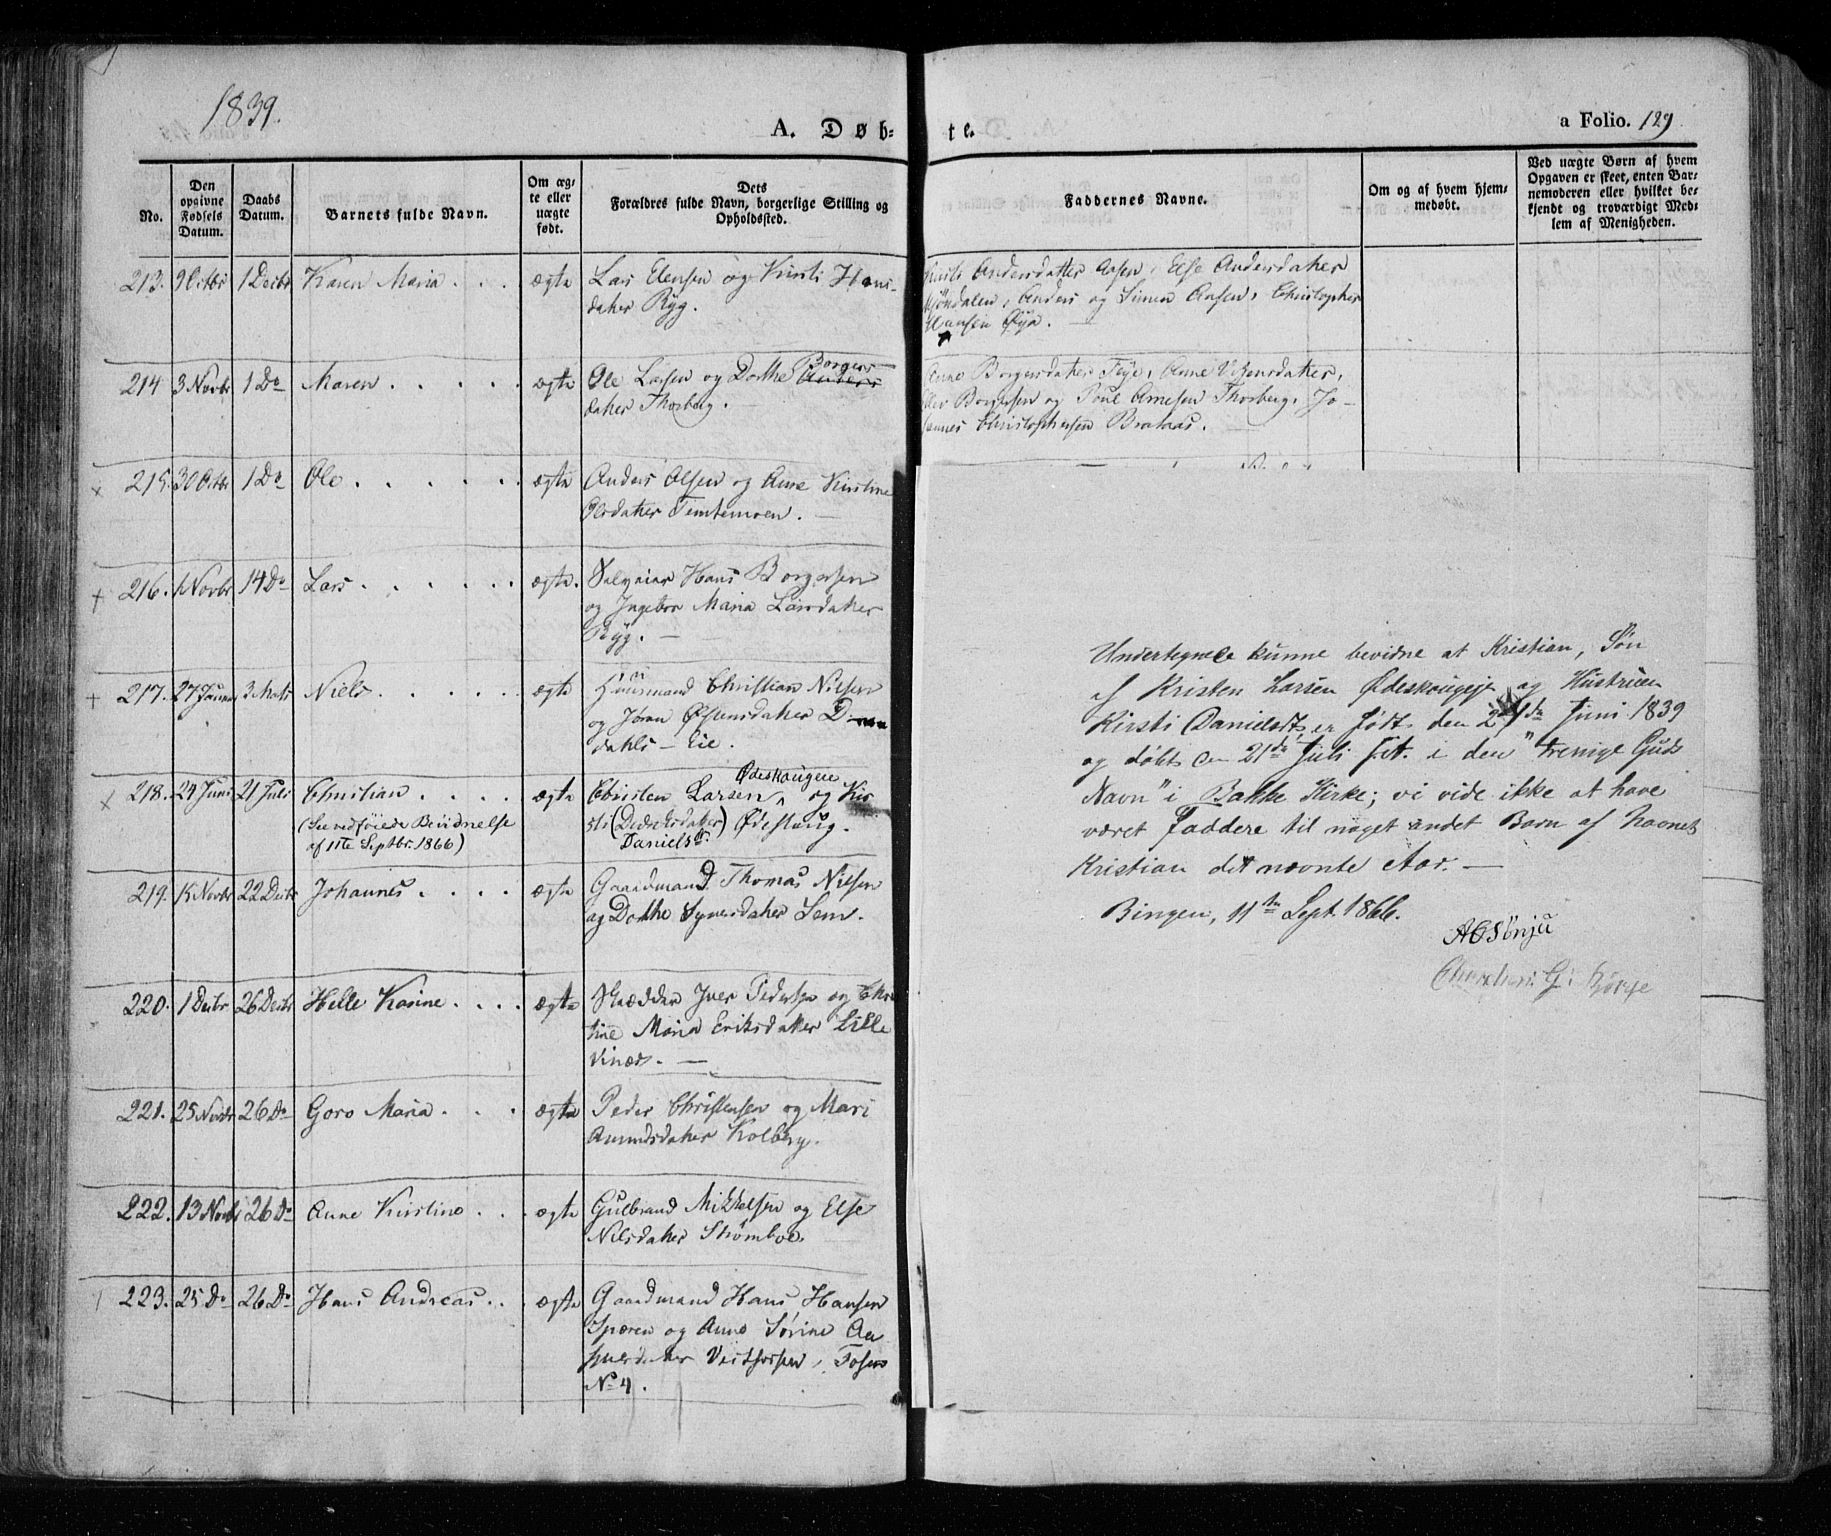 1839.
A. Døb-
te.
a Folio. 129
No.
Den
opgivne
Fødsels
Datum.
Daabs
Datum.
Barnets fulde Navn.
Om æg-
te eller
uægte
født.
Dets
Forældres fulde Navn, borgerlige Stilling og
Opholdssted.
Faddernes Navne.
Om og af hvem hjem-
medøbt.
Ved uægte Børn af hvem
Opgaven er skeet, enten Bar-
nemoderen eller hvilket be-
kjendt og troværdigt Med-
lem af Menigheden.
213. 9 Octbr 1 Decbr Karen Maria . . . ægte
Lars Elensen og Kirsti Hans-
datter Ryg.
Andersdatter Aasen, Else Andersdatter
Anders og Simen Aasen, Christopher
Hansen Øya.
214 3 Novbr 1 Do Maren . . . . . ægte
Ole Larsen og Dorthe Borgers
Anders
datter Thorberg.
Anne Borgersdatter Feye, Anne
Borgersen og Poul Arnesen Thorberg, Jo-
annes Christophersen Brataas.
× 215. 30 Octbr 1 Do Ole . . . . . . ægte
Anders Olsen og Anne Kirstine
Olsdatter Temtemoen.
+ 216. 1 Novbr 14 Do Lars . . . . . . ægte.
Hans Borgersen
og Ingebor Maria Larsdatter
Ryg.
+ 217. 27 3. Niels . . . . . . ægte
Huusmand Christian Nilsen
og Jøran Østensdatter
dahls-Eie.
× 218. 24 Juni 21 Juli Christian . . . . ægte
(See vedføiede Bevidnelse
af 11te Septbr. 1866)
Ødeskougeie
Christen Larsen, og Kir
sti (Didriksdatter) Ødeskoug.
Danielsdr.
219. 15 Novbr 22 Decbr Johannes . . . . ægte
Gaardmand Thomas Nilsen
og Dorthe Syversdatter Sem.
220. 1 Decbr 26 Decbr Helle Karine . . . . ægte
Skrædder Iver Pedersen og
tine Maria Eriksdatter Lille
Vinæs.
221. 25 Novbr 26 Do Goro Maria . . . ægte
Peder Christensen og Mari
Amundsdatter Kolberg.
222. 13 Novbr 26 Do Anne Kirstine . . . ægte
Gulbrand Mikkelsen og Else
Nilsdatter Strømboe.
223. 25 Do 26 Do Hans Andreas . . . ægte
Gaardmand Hans Hansen
Speren og Anne Sørine
Vestfossen,
No 4.
Undertegnede kunne bevidne at Kristian, Søn
af Kristen Larsen Ødeskougeje og Hustruen
Kirsti Danielsdt, er født den 24de Juni 1839
og døbt den 21de Juli s.A. i den "treenige Guds
Navn" i Bakke Kirke; vi vide ikke at have
været Faddere til noget andet Barn af Navnet
Kristian det nævnte Aar. —
Bingen, 11te Sept. 1866.